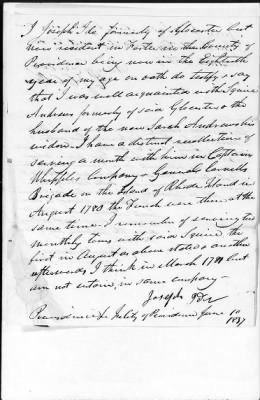 I Joseph Ide formerly of Glocester but
now resident in Foster in the County of
Providence being now in the Eightieth
year of my age on oath do testify & say
that I was well acquainted with Squire
Andrews formerly of said Glocester & the
husband of the now Sarah Andrews his
widow. I have a distinct recollection of
serving a month with him in Captain
Whipples Company & General Cornells
Brigade on the Island of Rhode Island in
August 1780 the French were there at the
same time. I remember of serving two
monthly tours with said Squire the
first in August as above stated & another
afterwards I think in March 1781 but
am not certain, in same company—
Joseph Ide
Providence City of Providence June 10
1837